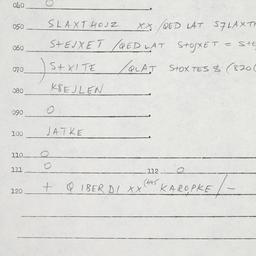 040 O
050 SLAXTHOJZ XX/QED LAT
060 S+EJXET /QED LAT S+OJXET =
070 ) S+XITE /QLAT S+OXTES & (820
080 KBEJLEN
090 O
100 JATKE
110 O
111 O 112 O
120 + QIBERDI XX KAROPKE/-